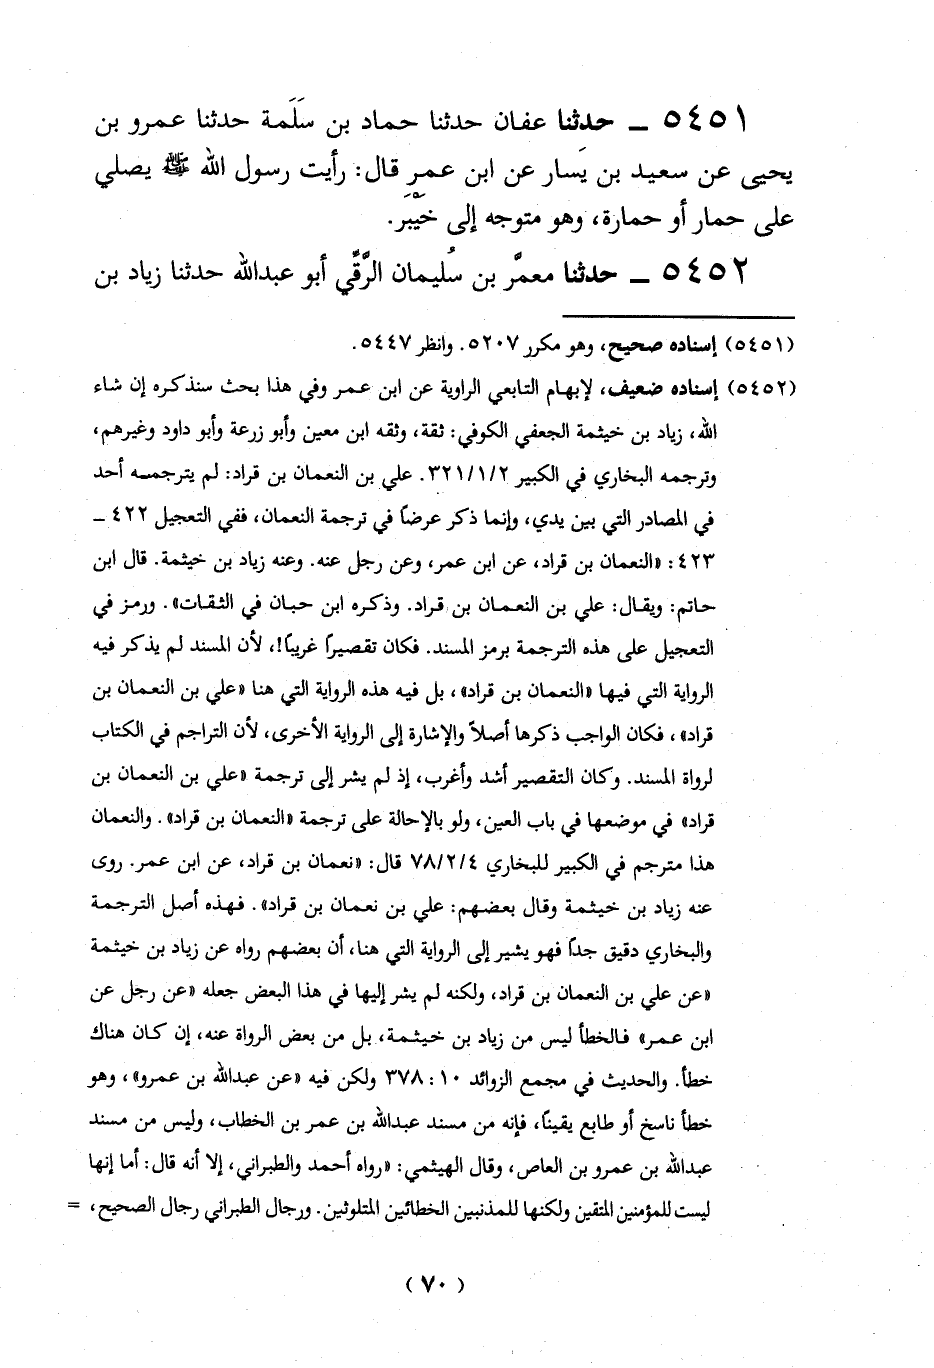 ٥٤٥١ ــ حدثنا عفان حدثنا حماد بن سَلَمة حدثنا عمرو بن
يحيى عن سعيد بن يَسار عن ابن عمر قال: رأيت رسول الله ﷺ يصلي
على حمار أو حمارة، وهو متوجه إلى خَيْبَر.
٥٤٥٢ ــ حدثنا معمَّر بن سُليمان الرَّقِّي أبو عبدالله حدثنا زياد بن
(٥٤٥١) إسناده صحيح، وهو مكرر ٥٢٠٧. وانظر ٥٤٤٧.
(٥٤٥٢) إسناده ضعيف، لإبهام التابعي الراوية عن ابن عمر وفي هذا بحث سنذكره إن شاء
الله، زياد بن خيثمة الجعفي الكوفي: ثقة، وثقه ابن معين وأبو زرعة وأبو داود وغيرهم،
وترجمه البخاري في الكبير ٣٢١/١/٢. علي بن النعمان بن قراد: لم يترجمه أحد
في المصادر التي بين يدي، وإنما ذكر عرضاً في ترجمة النعمان، ففي التعجيل ٤٢٢ ــ
٤٢٣: «النعمان بن قراد، عن ابن عمر، وعن رجل عنه. وعنه زياد بن خيثمة. قال ابن
حاتم: ويقال: علي بن النعمان بن قراد. وذكره ابن حبان في الثقات». ورمز في
التعجيل على هذه الترجمة برمز المسند. فكان تقصيراً غريباً!، لأن المسند لم يذكر فيه
الرواية التي فيها «النعمان بن قراد»، بل فيه هذه الرواية التي هنا «علي بن النعمان بن
قراد»، فكان الواجب ذكرها أصلاً والإشارة إلى الرواية الأخرى، لأن التراجم في الكتاب
لرواة المسند. وكان التقصير أشد وأغرب، إذ لم يشر إلى ترجمة «علي بن النعمان بن
قراد» في موضعها في باب العين، ولو بالإحالة على ترجمة «النعمان بن قراد». والنعمان
هذا مترجم في الكبير للبخاري ٧٨/٢/٤ قال: «نعمان بن قراد، عن ابن عمر. روى
عنه زياد بن خيثمة وقال بعضهم: علي بن نعمان بن قراد». فهذه أصل الترجمة
والبخاري دقيق جداً فهو يشير إلى الرواية التي هنا، أن بعضهم رواه عن زياد بن خيثمة
«عن علي بن النعمان بن قراد، ولكنه لم يشر إليها في هذا البعض جعله «عن رجل عن
ابن عمر» فالخطأ ليس من زياد بن خيثمة، بل من بعض الرواة عنه، إن كان هناك
خطأ. والحديث في مجمع الزوائد ١٠: ٣٧٨ ولكن فيه «عن عبدالله بن عمرو»، وهو
خطأ ناسخ أو طابع يقيناً، فإنه من مسند عبدالله بن عمر بن الخطاب، وليس من مسند
عبدالله بن عمرو بن العاص، وقال الهيثمي: «رواه أحمد والطبراني، إلا أنه قال: أما إنها
ليست للمؤمنين المتقين ولكنها للمذنبين الخطائين المتلوثين. ورجال الطبراني رجال الصحيح، =
(٧٠)